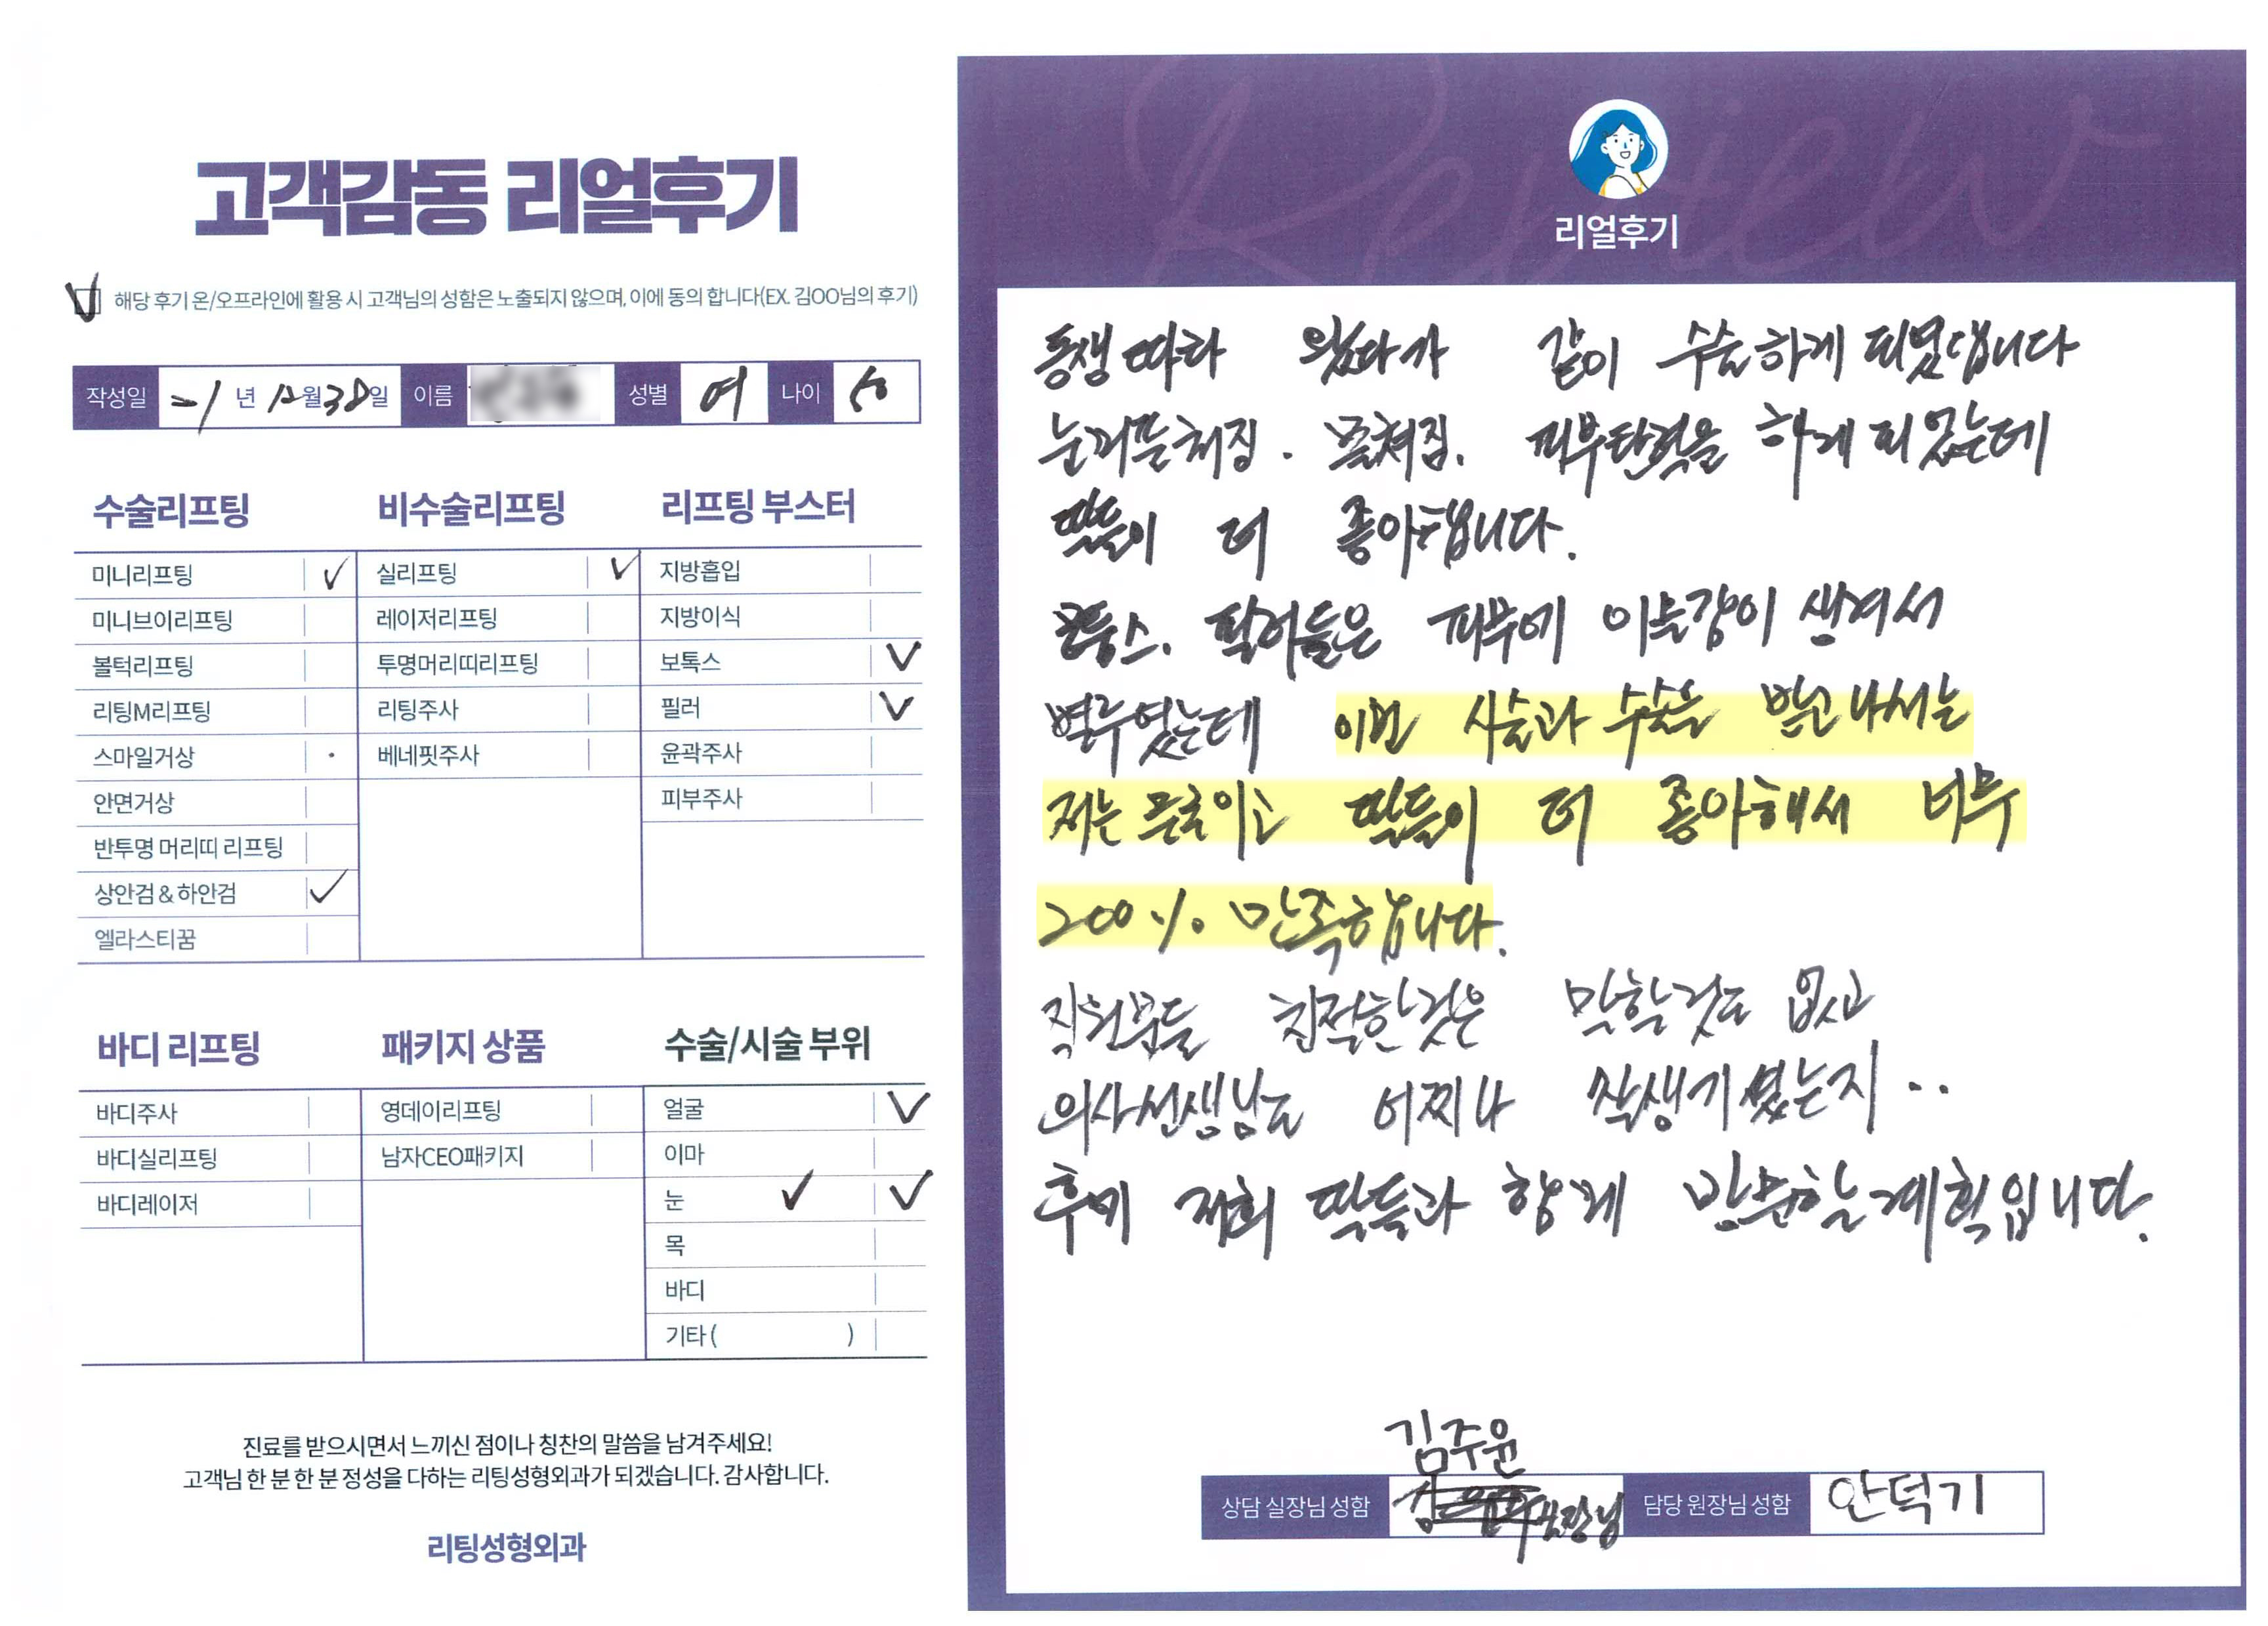 고객감동 리얼후기
해당 후기 온/오프라인에 활용 시 고객님의 성함은 노출되지 않으며, 이에 동의 합니다(EX. 김OO님의 후기)
작성일 21년 12월 30일 이름 성별 여 나이 50
수술리프팅
미니리프팅
미니브이리프팅
볼턱리프팅
리팅M리프팅
스마일거상
안면거상
반투명 머리띠 리프팅
상안검 & 하안검
엘라스티꿈
비수술리프팅
실리프팅
레이저리프팅
투명머리띠리프팅
리팅주사
베네핏주사
리프팅 부스터
지방흡입
지방이식
보톡스
필러
윤곽주사
피부주사
바디 리프팅
바디주사
바디실리프팅
바디레이저
패키지 상품
영데이리프팅
남자CEO패키지
수술/시술 부위
얼굴
이마
눈
목
바디
기타 ( )
진료를 받으시면서 느끼신 점이나 칭찬의 말씀을 남겨주세요!
고객님 한 분 한 분 정성을 다하는 리팅성형외과가 되겠습니다. 감사합니다.
리팅성형외과
Review
리얼후기
동생 따라 왔다가 같이 수술하게 되었답니다
눈꺼플쳐짐. 볼쳐짐. 피부탄력을 하게 되었는데
딸들이 더 좋아합니다.
보톡스. 필러들은 피부에 이물감이 생겨서
별루였는데 이번 시술과 수술을 받고 나서는
저는 물론이고 딸들이 더 좋아해서 너무
200% 만족합니다.
직원분들 친절한것은 말할것도 없고
의사선생님도 어찌나 잘생기셨는지..
후에 저희 딸들과 함께 방문할 계획입니다.
김주윤
상담 실장님 성함 실장님 담당 원장님 성함 안덕기